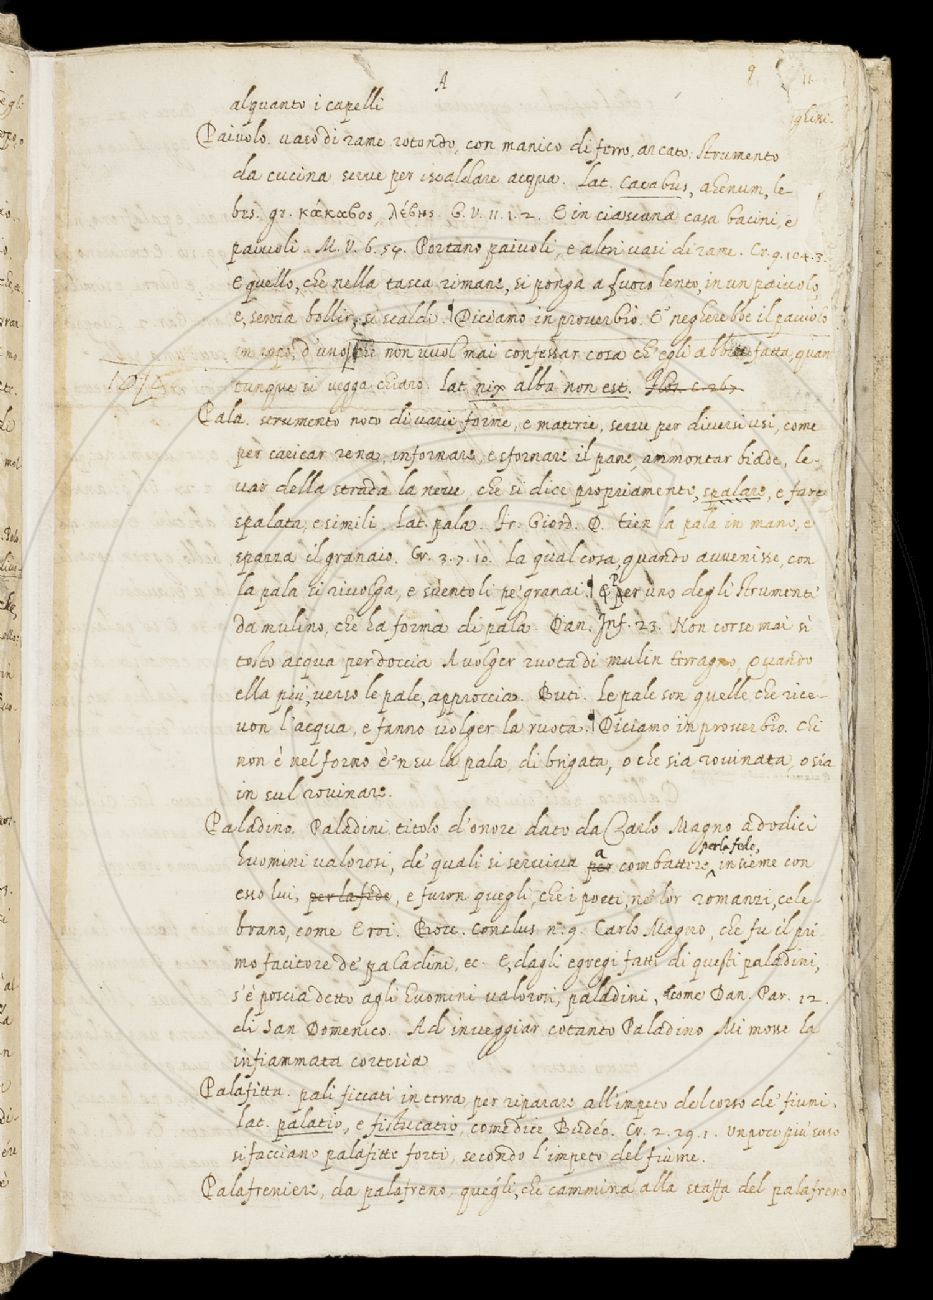 A
9
alquanto i capelli
Paiuolo. vaso di rame rotondo, con manico di ferro, arcato. Strumento
da cucina serue per iscaldare acqua. Lat. Cacabus, ahenum, le-
bes. gr. κάκαβος, λέβης. G. V. 11. 1. 2. E in ciascuna casa bacini, e
paiuoli. M. V. 6. 54. Portano paiuoli, e altri vasi di rame. Cr. 9. 104. 3.
E quello, che nella tasca rimane, si ponga a fuoco lento, in un paiuolo,
e, senza bollir, si scaldi. Diciamo in prouerbio. E' negherebbe il paiuolo
in capo, d'uno che non vuol mai confessar cosa ch'egli abbia fatta, quan
tunque si vegga chiaro. Lat. nix alba non est.
Pala. strumento noto di varie forme, e materie, serue per diuersi usi, come
per caricar rena, infornare, e sfornare il pane, ammontar biade, le-
uar della strada la neue, che si dice propriamente, spalare, e fare
spalata, e simili. Lat. pala. Fr. Giord. D. tien la pala in mano, e
spazza il granaio. Cr. 3. 7. 10. la qual cosa, quando auuenisse, con
la pala si riuolga, e suentoli pe' granai. Per uno degli Strumenti
da mulino, che ha forma di pala. Dan. Inf. 23. Non corse mai sì
tosto acqua per doccia A volger ruota di mulin terragno, Quando
ella più, verso le pale, approccia. Buti. Le pale son quelle che rice-
uon l'acqua, e fanno volger la ruota. Diciamo in prouerbio. Chi
non è nel forno è 'n su la pala, di brigata, o che sia rouinata, o sia
in sul rouinare.
Paladino. Paladini titolo d'onore dato da Carlo Magno a dodici
huomini valorosi, de' quali si seruiua per a combattere, per la fede, insieme con
esso lui, per la fede, e furon quegli, che i poeti, ne' lor romanzi, cele-
brano, come Eroi. Pecor. Conclus n. 9. Carlo Magno, che fu il pri
mo facitore de' paladini, ec. E, dagli egregi fatti di questi paladini,
s'è poscia detto agli huomini valorosi, paladini, come Dan. Par. 12.
di San Domenico. Ad inueggiar cotanto Paladino Mi mosse la
infiammata cortesia
Palafitta. pali ficcati in terra per riparare all'impeto del corso de' fiumi.
Lat. palatio, e fistucatio, come dice Budeo. Cr. 2. 29. 1. Un poco più suso
si facciano palafitte forti, secondo l'impeto del fiume.
Palafreniere, da palafreno, quegli, che cammina alla staffa del palafreno